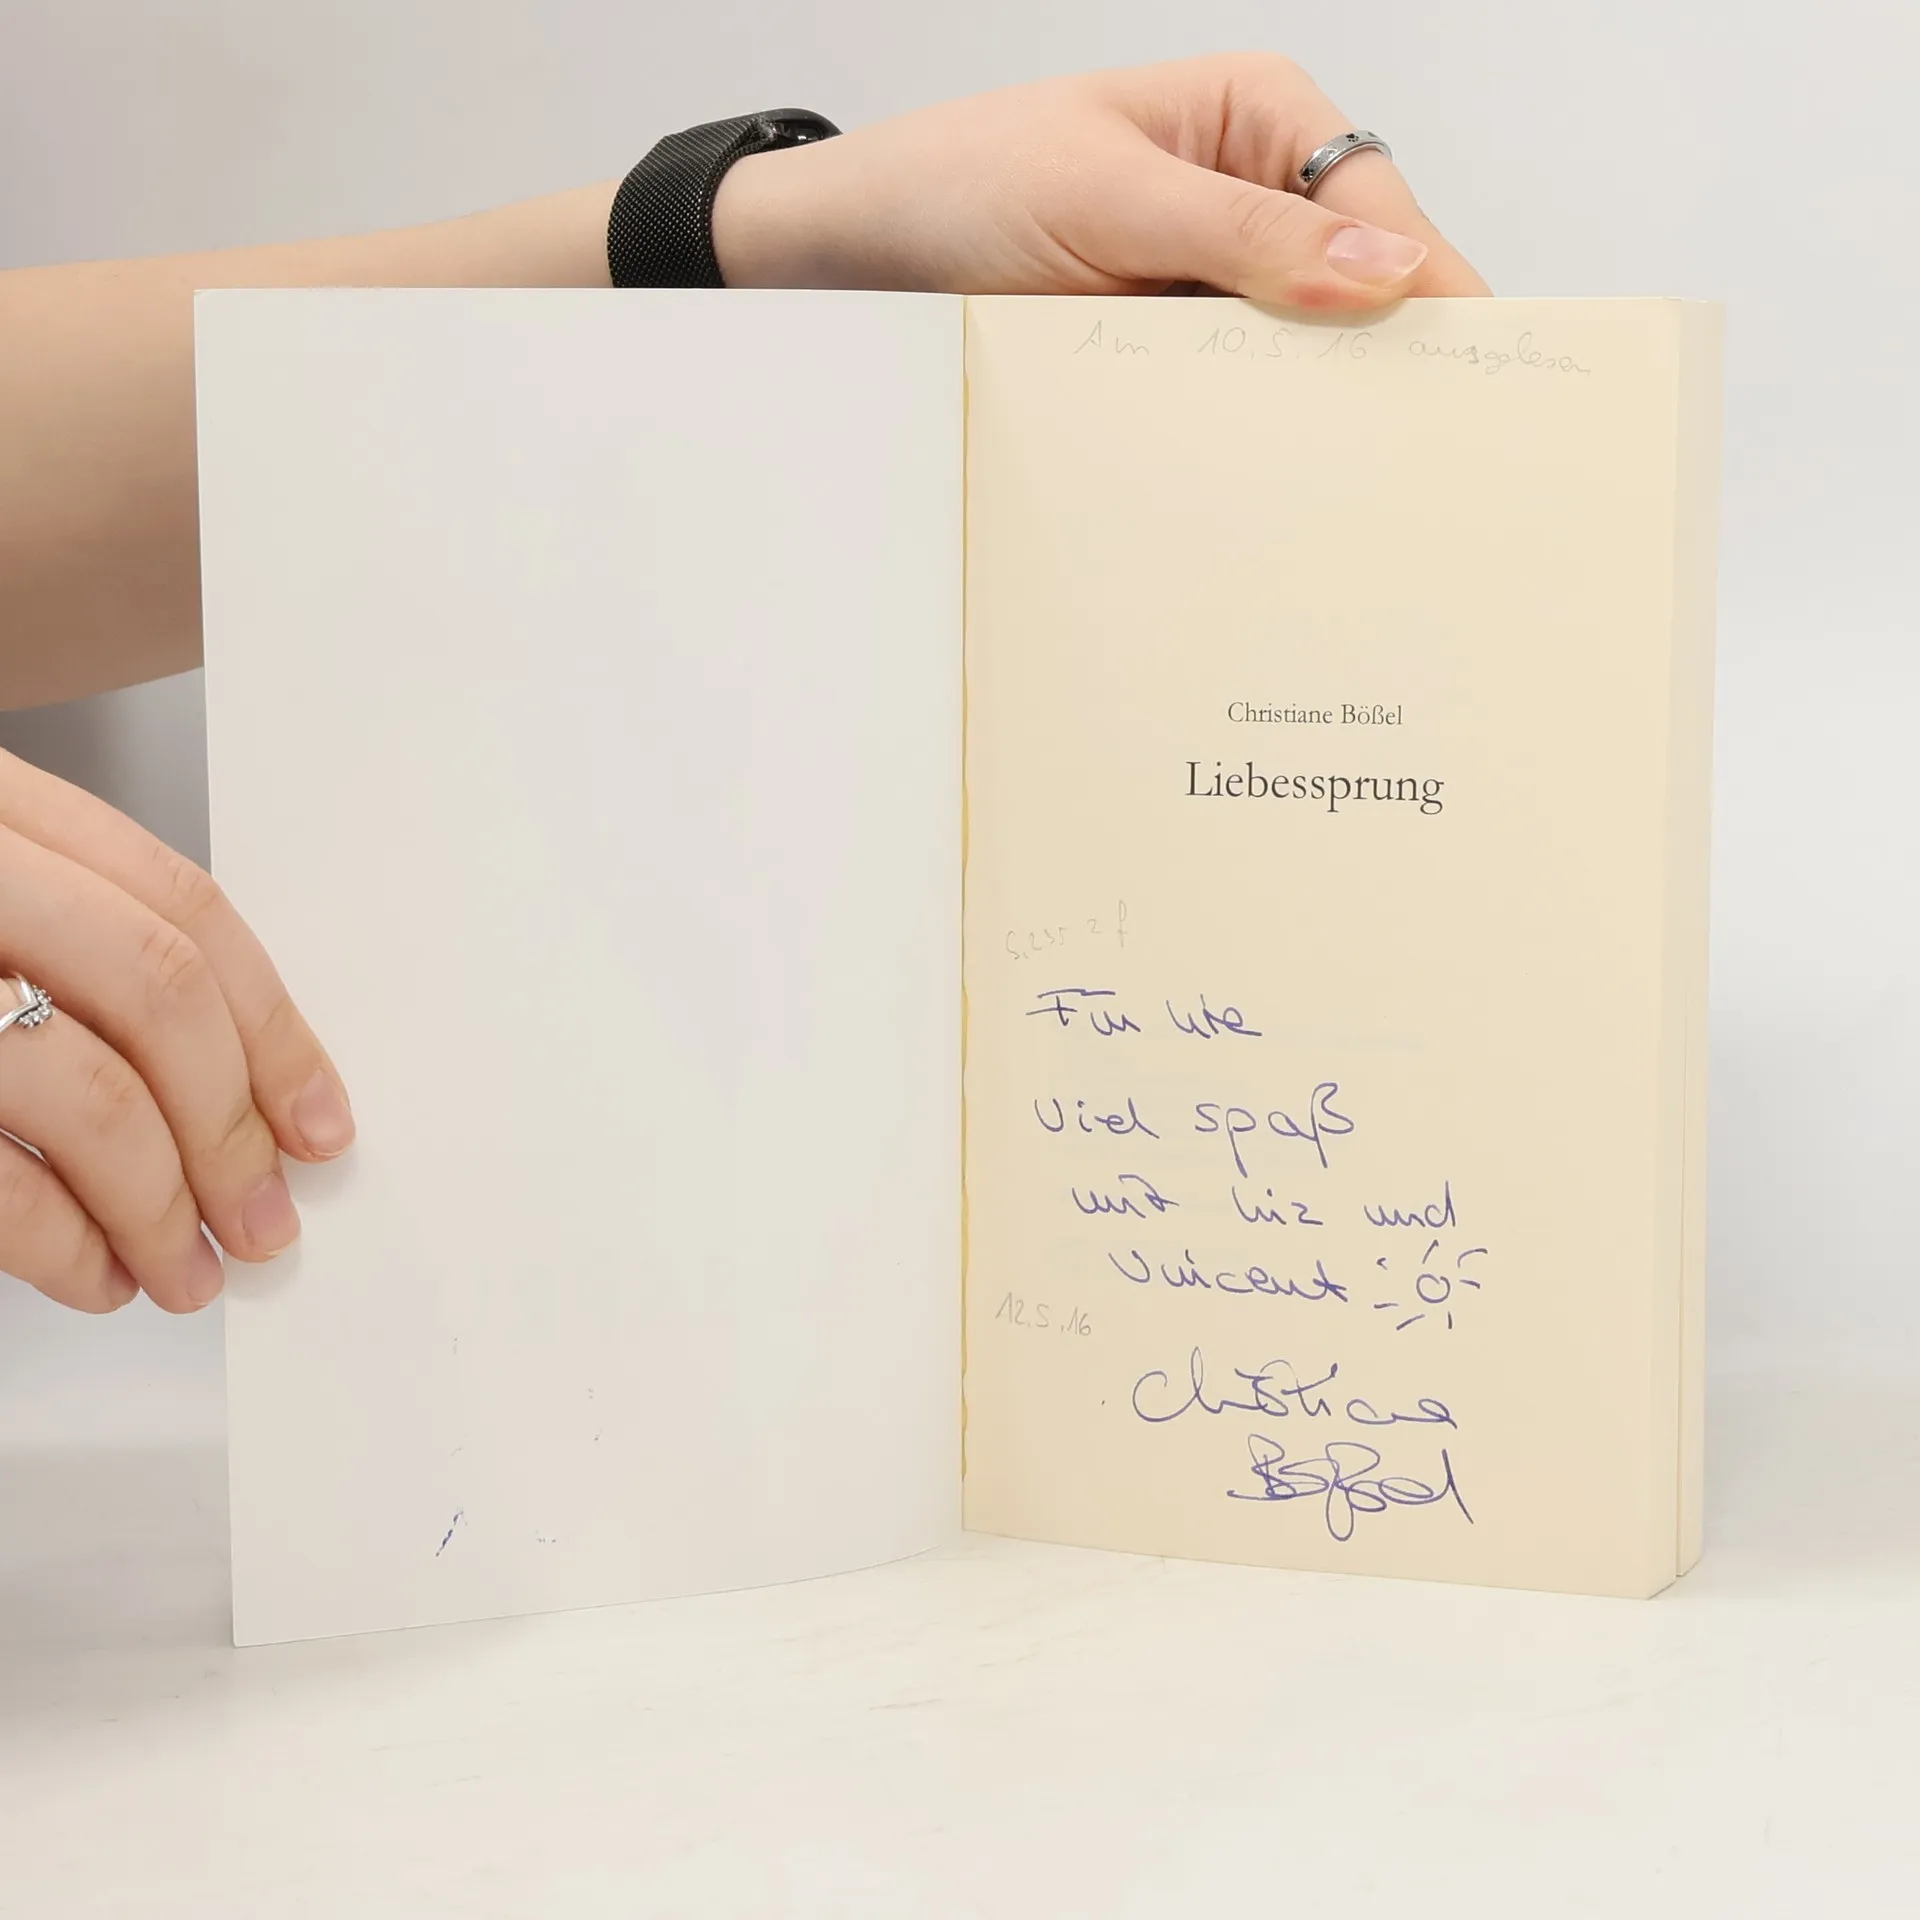 Am 10.5.16 ausgelesen
Christiane Bößel
Liebessprung
S. 235 2 f
Für Ute
Viel spaß
mit Liz und
Vincent
12.5.16
Christiane
Bößel